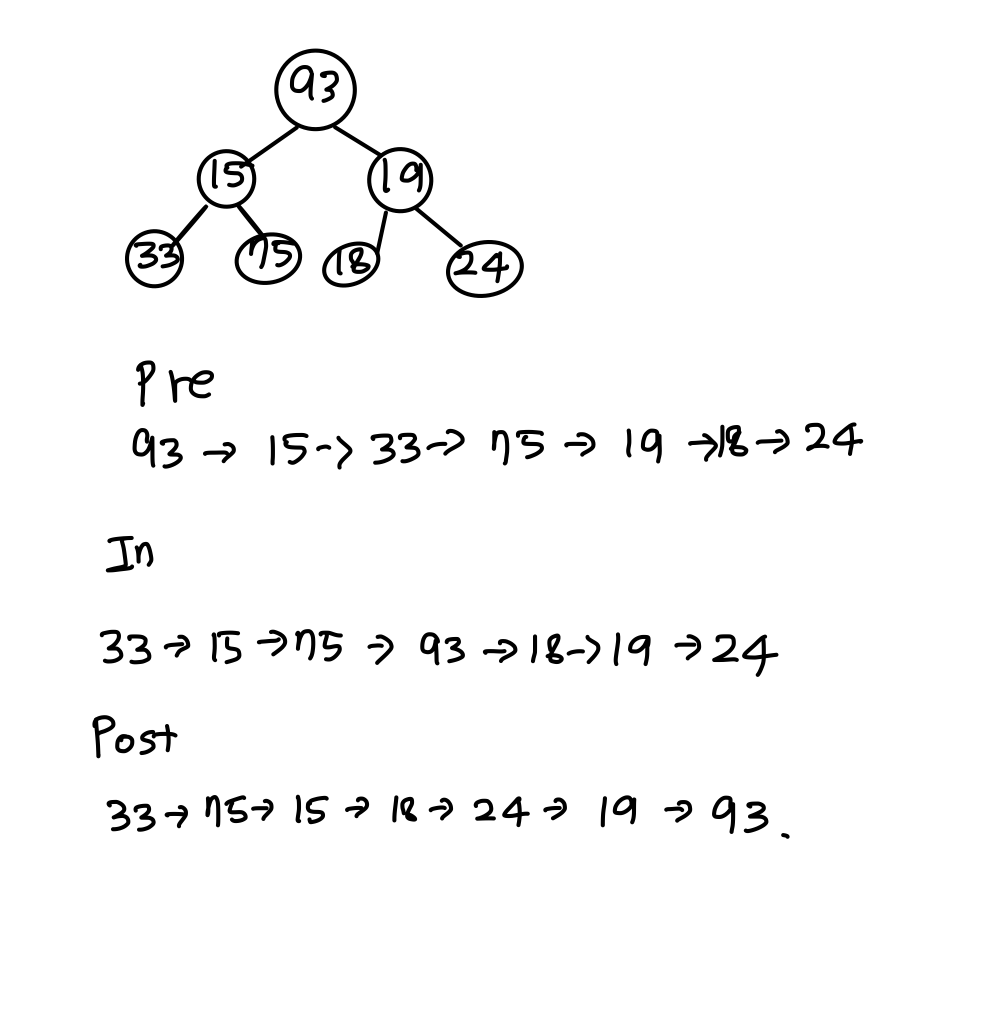 93
15 19
33 75 18 24
Pre
93 → 15 -> 33 → 75 → 19 → 18 → 24
In
33 → 15 → 75 → 93 → 18 -> 19 → 24
Post
33 → 75 → 15 → 18 → 24 → 19 → 93.